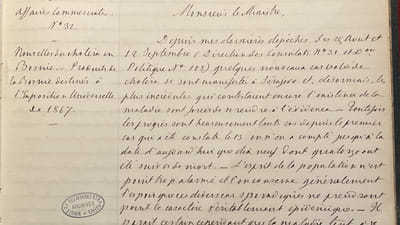 affaires Commerciales.
N° 32.
Nouvelles du choléra en
Bosnie. — Produits de
la Bosnie destinés à
l'Exposition Universelle
de 1867.
Monsieur le Ministre,
Depuis mes dernières dépêches des 12 Août et
12 Septembre (Direction des Consulats N° 31 et Don
Politique N° 123) quelques nouveaux cas isolés de
choléra se sont manifestés à Séraïevo et, désormais, les
plus incrédules qui contestaient encore l'existence de la
maladie sont forcés de se rendre à l'évidence. — Toutefois
les progrès sont heureusement lents car depuis le premier
cas qui a été constaté le 13 on n'en a compté jusqu'à la
date d'aujourd'hui que dix neuf dont quatre ont
été suivis de mort. — L'esprit de la population n'est
point trop alarmé et l'on conserve généralement
l'espoir que ces divers cas sporadiques ne prendront
pas le caractère véritablement épidémique. — Il
paraît certain cependant que la maladie tout à
ARCHIVES